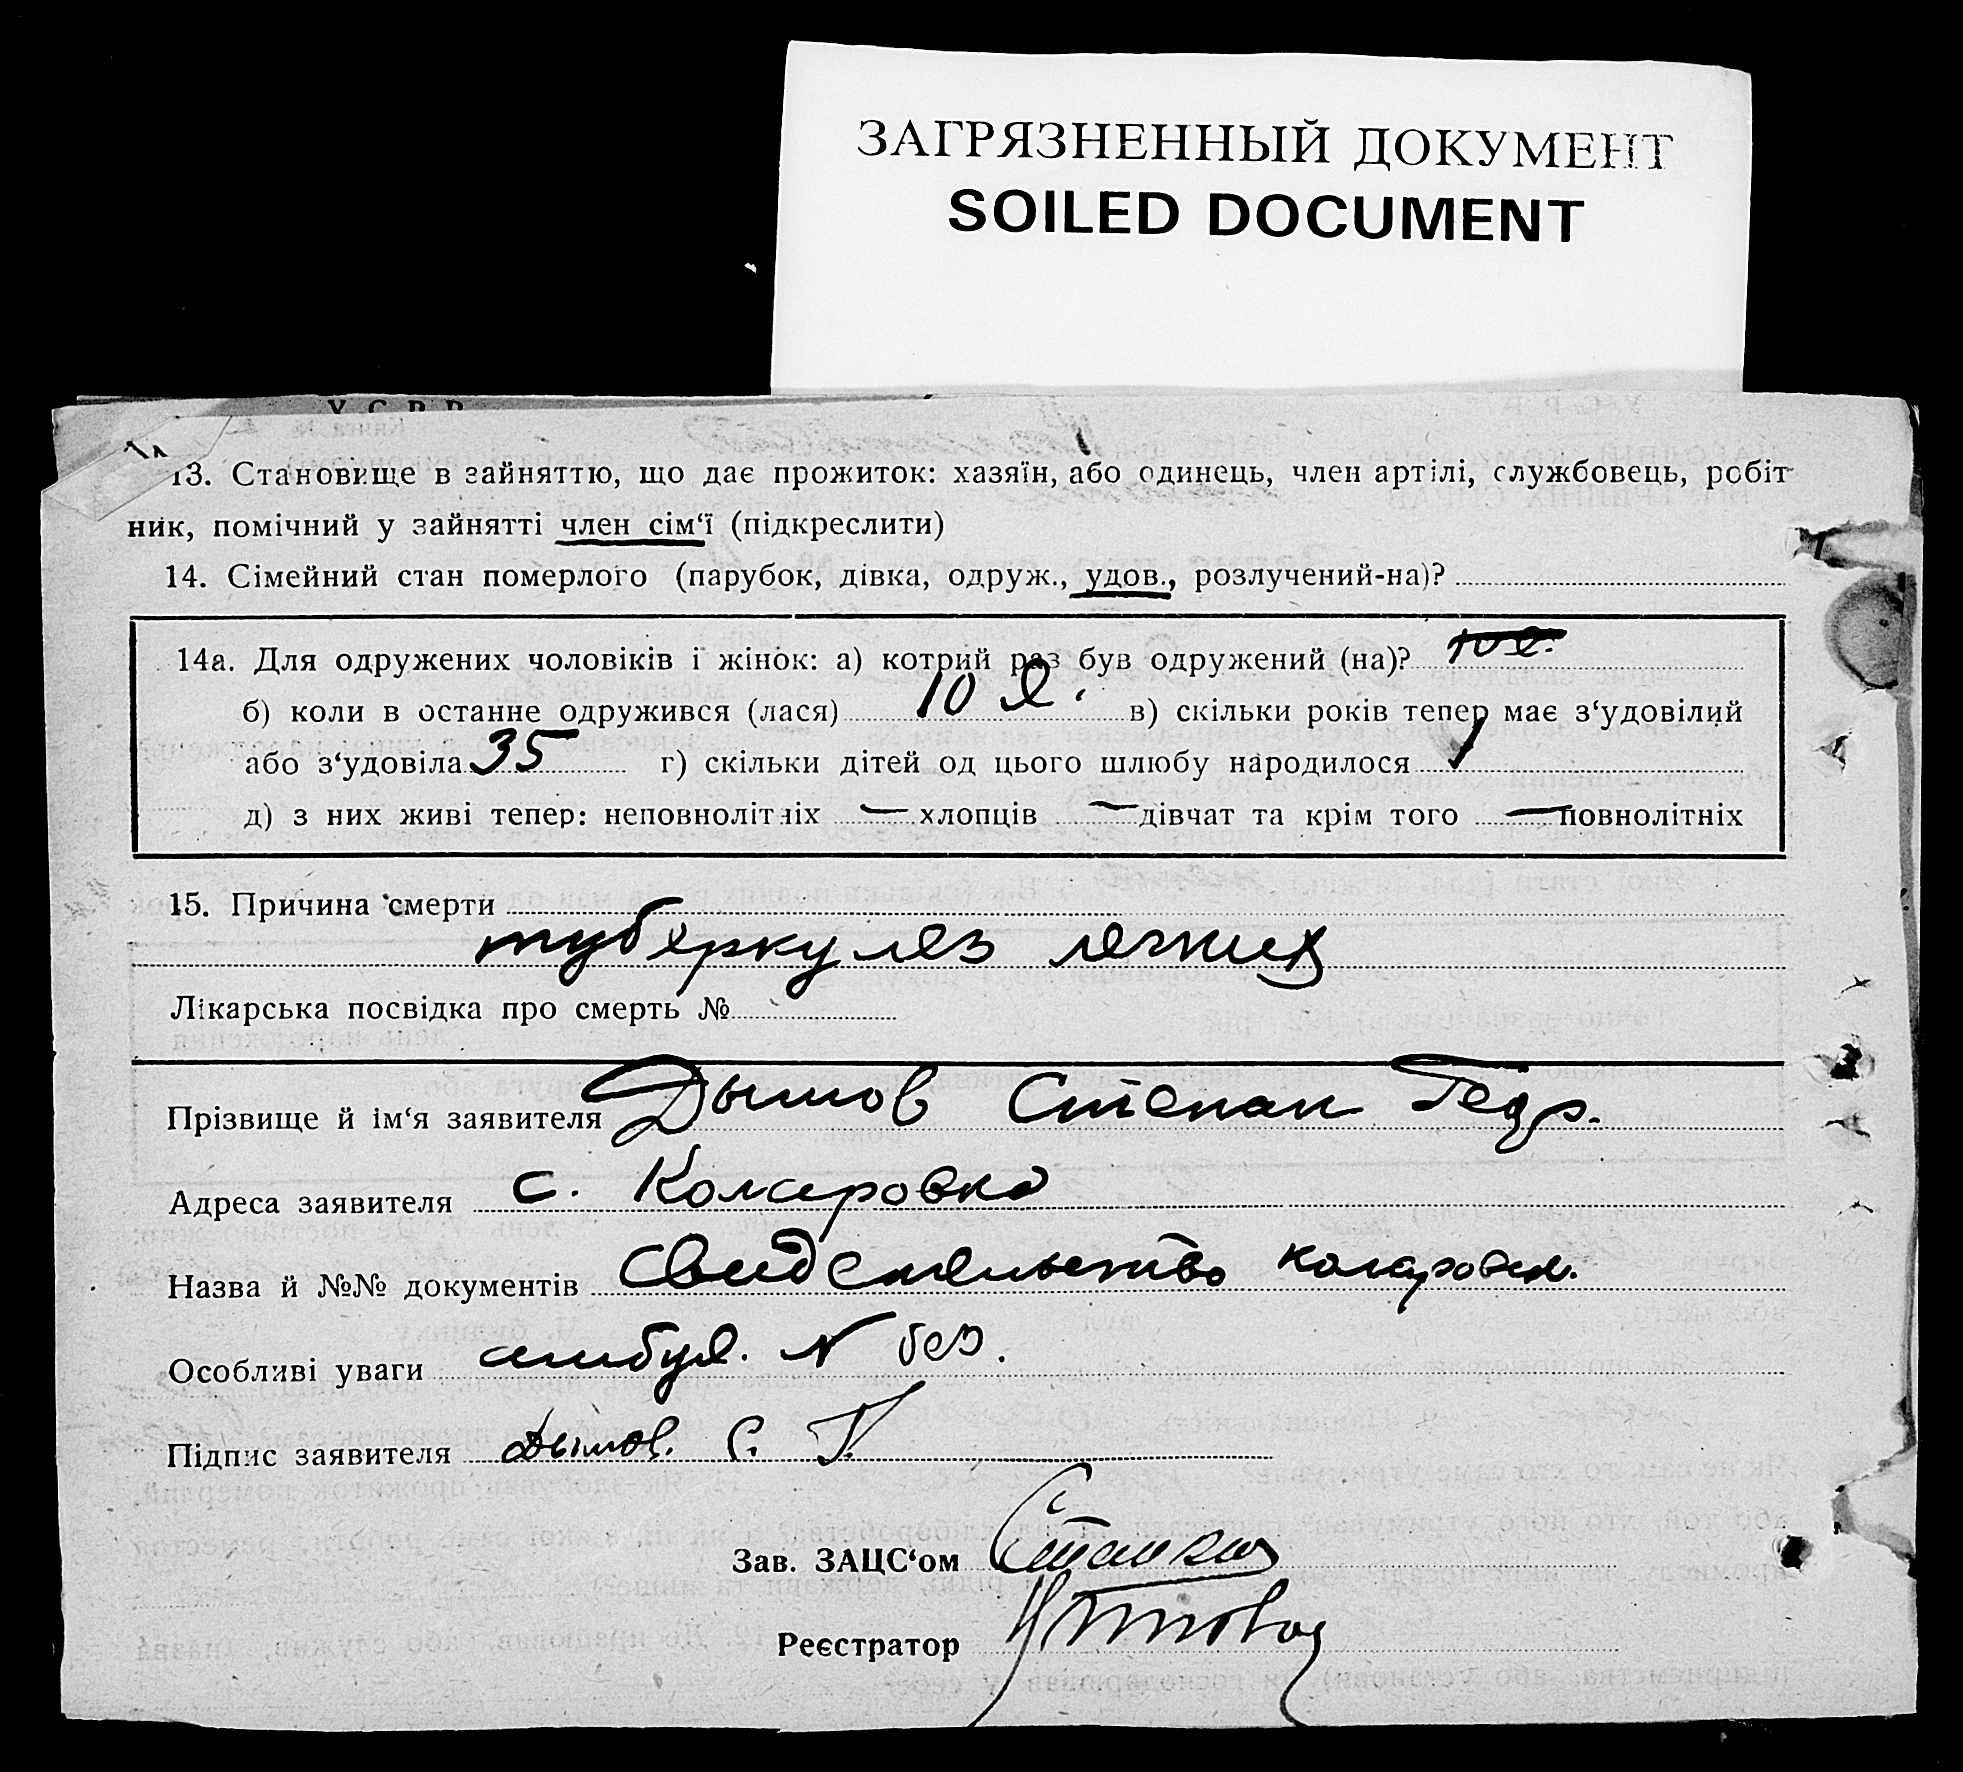 ЗАГРЯЗНЕННЫЙ ДОКУМЕНТ
SOILED DOCUMENT
У С Р Р
13. Становище в зайняттю, що дає прожиток: хазяїн, або одинець, член артілі, службовець, робіт
ник, помічний у зайнятті член сім‘ї (підкреслити)
14. Сімейний стан померлого (парубок, дівка, одруж., удов., розлучений-на)?
14а. Для одружених чоловіків і жінок: а) котрий раз був одружений (на)? 10 л.
б) коли в останнє одружився (лася) 10 л. в) скільки років тепер має з‘удовілий
або з‘удовіла 35 г) скільки дітей од цього шлюбу народилося 1
д) з них живі тепер: неповнолітніх — хлопців — дівчат та крім того — повнолітніх
15. Причина смерти
туберкулез легких
Лікарська посвідка про смерть №
Прізвище й ім‘я заявителя Дымов Степан
Адреса заявителя с. Комаровка
Назва й №№ документів свидетельство комаровск.
Особливі уваги амбул. N без.
Підпис заявителя Дымов. С. Г.
Зав. ЗАЦС‘ом
Реєстратор